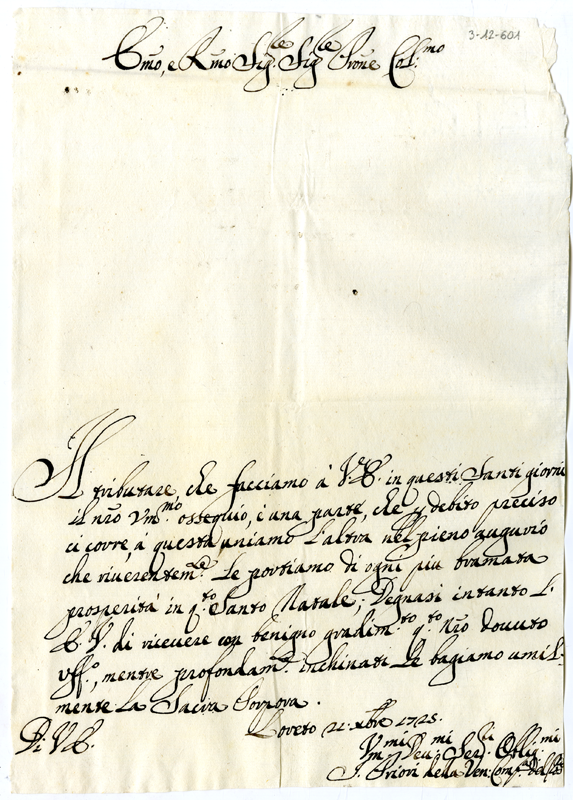 3-12-601
Emo, e Rmo Sig.re Sig.re Prone Col.mo
Il tributare, che facciamo à V.E. in questi Santi giorni
il nro Vm.mo ossequio, è una parte, che p debito preciso
ci corre, à questa uniamo l'altra nel pieno augurio
che riverentem.te Le portiamo di ogni più bramata
prosperità in q.to Santo Natale; Degnasi intanto L'
E.V. di ricevere con benigno gradim.to q.to nro dovuto
uff.o, mentre profondam.te inchinati Le bagiamo umil-
mente la Sacra Porpora.
Loreto 21 Xbre 1725.
Di V.E.
Vm.mi Dev.mi Ser.ri Oblig.mi
I Priori della Ven: Comp.a del